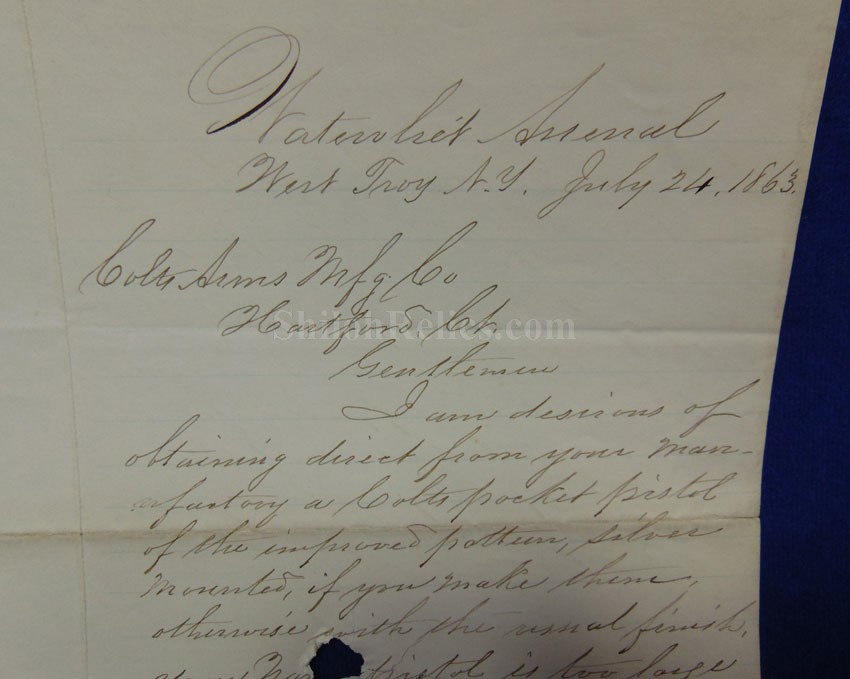 Watervliet Arsenal
West Troy N.Y. July 24, 1863.
Colts Arms Mfg Co
Hartford Ct.
ShilohRelics.com
Gentlemen
I am desirous of
obtaining direct from your Man-
ufactory a Colts pocket pistol
of the improved pattern, silver
mounted, if you make them,
otherwise with the usual finish.
pistol is too large